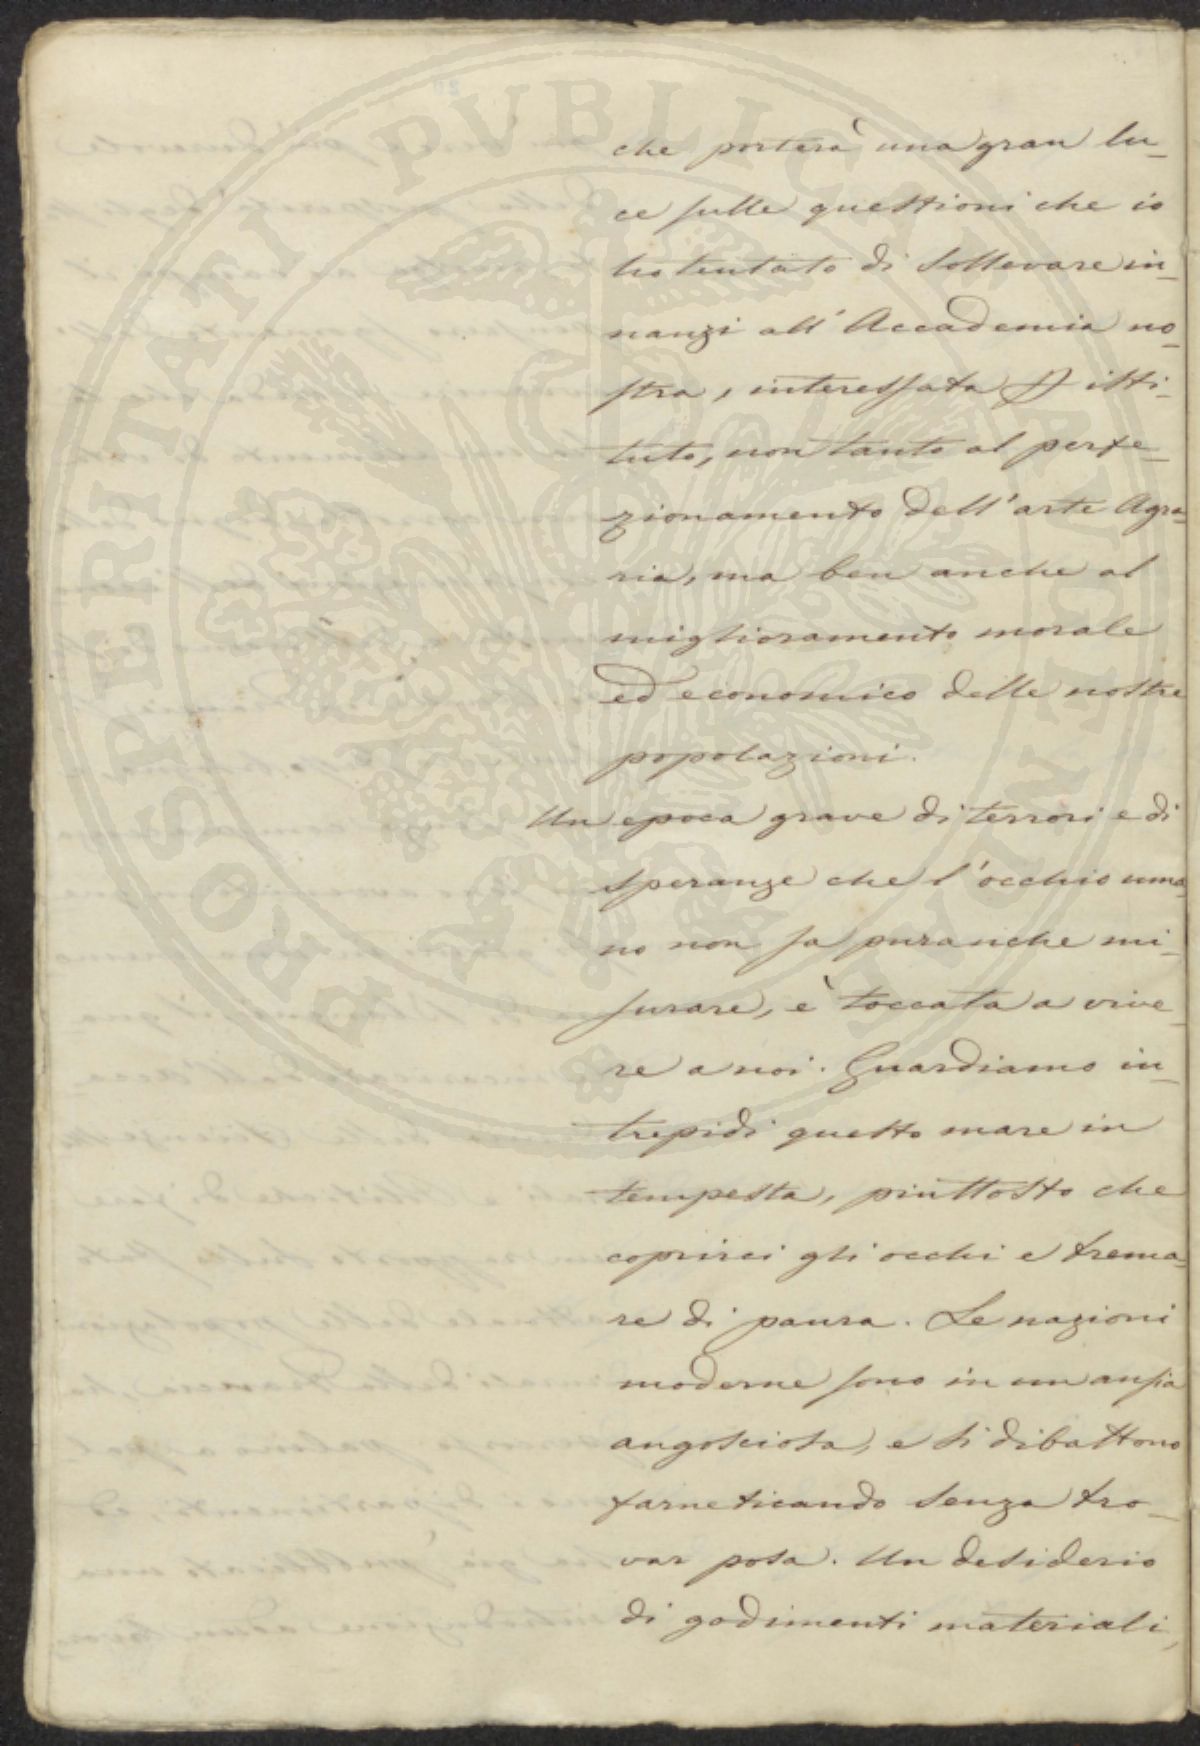 che porterà una gran lu-
ce sulle questioni che io
ho tentato di sollevare in-
nanzi all'Accademia no-
stra, interessata p isti-
tuto, non tanto al perfe-
zionamento dell'arte Agra-
ria, ma ben anche al
miglioramento morale
ed economico delle nostre
popolazioni.
Un epoca grave di terrori e di
speranze che l'occhio uma-
no non sa puranche mi-
surare, è toccata a vive-
re a noi. Guardiamo in-
trepidi questo mare in
tempesta, piuttosto che
coprirci gli occhi e trema-
re di paura. Le nazioni
moderne sono in un ansia
angosciosa, e si dibattono
farneticando senza tro-
var posa. Un desiderio
di godimenti materiali,
PROSPERITATI PVBLICAE AVGENDAE